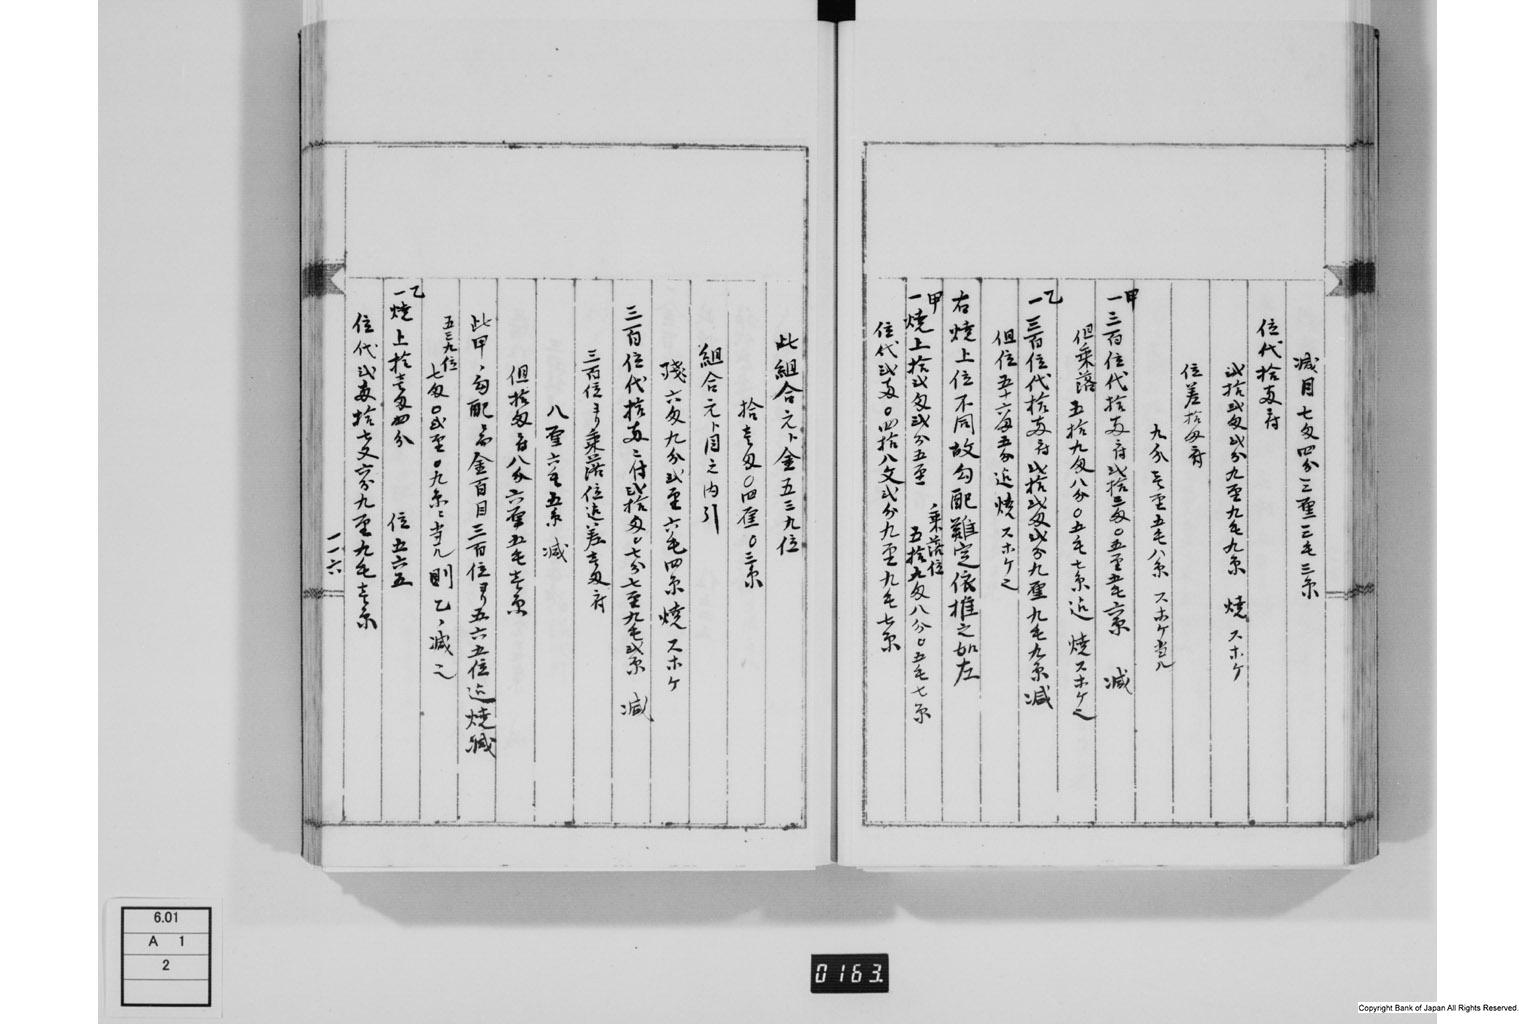 減目七匁四分三厘三毛三糸
位代拾両ニ付
弐拾弐匁弐分九厘九毛九糸 焼スホケ
位差拾匁ニ付
九分壱厘五毛八糸スホケ当ル
甲
一三百位代拾両ニ付弐拾三匁〇五厘五毛六糸 減
但乗落五拾九匁八分〇五毛七糸迄焼スホケ之
乙
一三百位代拾両ニ付弐拾弐匁弐分九厘九毛九糸減
但位五十六匁五分迄焼スホケ之
右焼上位不同故勾配難定依推之如左
甲
一焼上拾弐匁弐分五厘 乗落位五拾九匁八分〇五毛七糸
位代弐両〇四拾八文弐分九厘九毛七糸
此組合元ト金五三九位
拾壱匁〇四厘〇三糸
組合元ト目之内引
残六匁九分弐厘六毛四糸焼スホケ
三百位代拾両ニ付弐拾匁〇七分七厘九毛弐糸 減
三百位ヨリ乗落位迄差壱匁ニ付
八厘六毛五糸減
但拾匁ニ付八分六厘五毛壱糸
此甲ノ勾配ニ而金百目三百位ヨリ五六五位迄焼減
五三九位
七匁〇弐厘〇九糸ニ当ル則乙ノ減之
乙
一焼上拾壱匁四分 位五六五
位代弐両拾七文六分九厘九毛壱糸
一一六
6.01
A 1
2
0163
Copyright Bank of Japan All Rights Reserved.